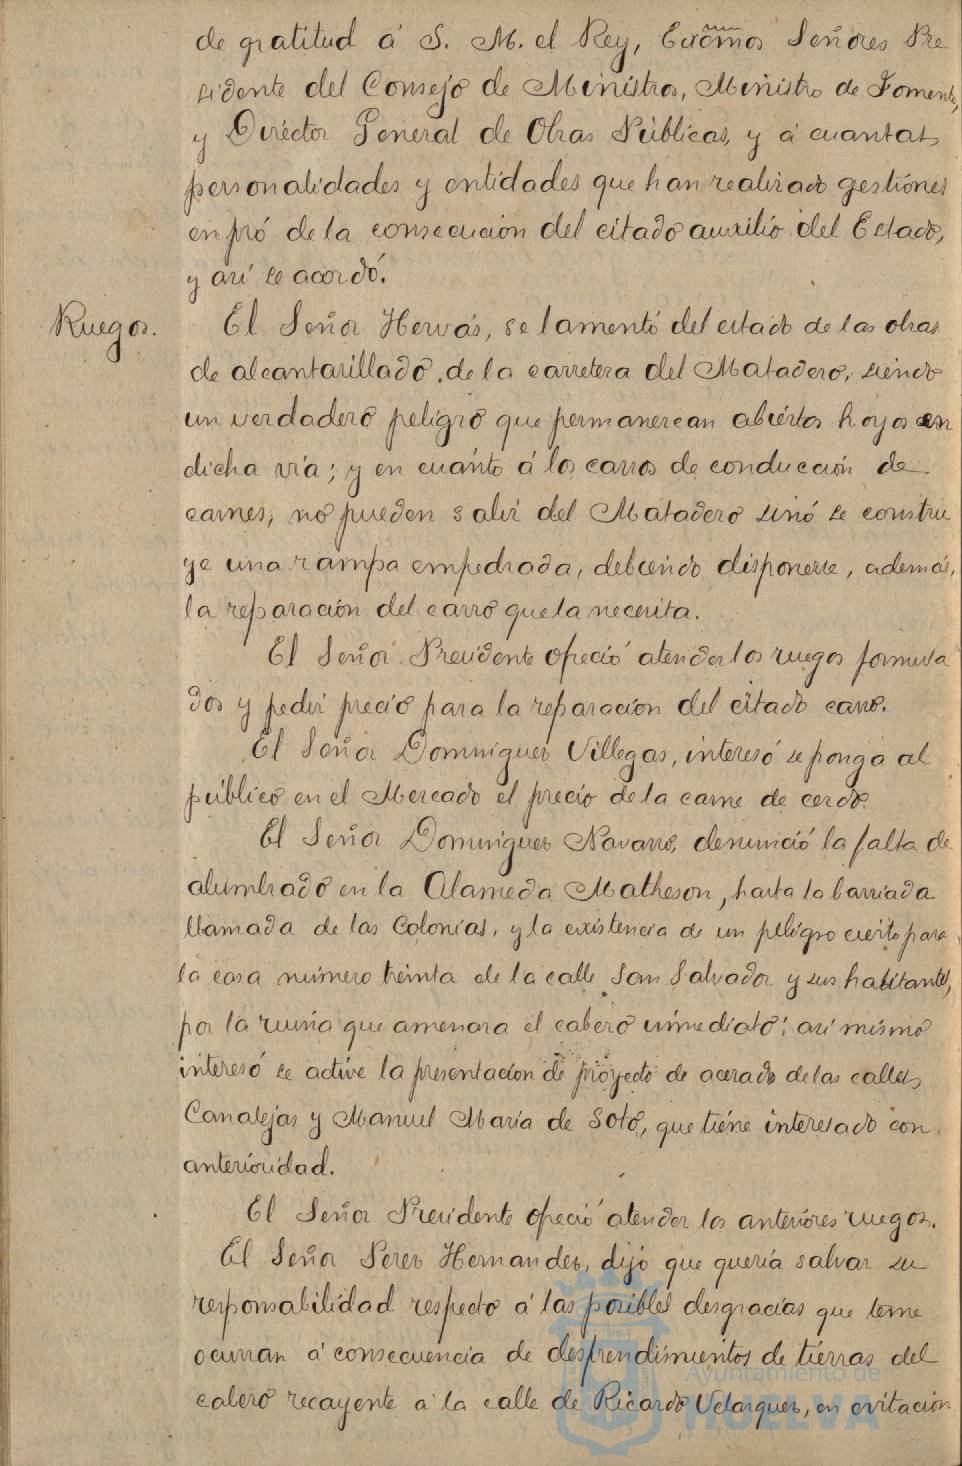 de gratitud á S. M. el Rey, Excmos Señores Pre
sidente del Consejo de Ministros, Ministro de Fomento,
y Director General de Obras Públicas, y á cuantas
personalidades y entidades que han realizado gestiones
en pró de la consecución del citado auxilio del Estado,
y así se acordó.
Ruegos.
El Señor Hervás, se lamentó del estado de las obras
de alcantarillado de la carretera del Matadero, siendo
un verdadero peligro que permanezcan abiertos hoyos en
dicha vía; y en cuánto á los carros de conducción de
carnes, no pueden salir del Matadero sinó se constru
ye una rampa empedrada, debiendo disponerse, además,
la reparación del carro que la necesita.
El Señor Presidente ofreció atender los ruegos formula
dos y pedir precio para la reparación del citado carro.
El Señor Dominguez Villegas, interesó se ponga al
público en el Mercado el precio de la carne de cerdo.
El Señor Dominguez Navarro, denunció la falta de
alumbrado en la Alameda Matheson, hasta la barriada
llamada de las Colonias, y la existencia de un peligro cierto para
la casa número treinta de la calle San Salvador y sus habitantes,
por la ruina que amenaza el cabezo inmediato; así mismo
interesó se active la presentación de proyecto de acerado de las calles
Canalejas y Manuel María de Soto, que tiene interesado con
anterioridad.
El Señor Presidente ofreció atender los anteriores ruegos.
El Señor Perez Hernandez, dijo que quería salvar su
responsabilidad respecto á las posibles desgracias que teme
ocurran á consecuencia de desprendimientos de tierras del
cabezo recayente á la calle de Ricardo Velazquez, en evitación
Ayuntamiento de
HUELVA